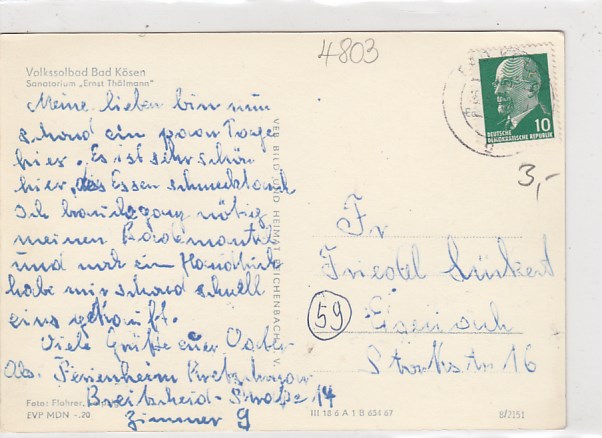 4803
Volkssolbad Bad Kösen
Sanatorium „Ernst Thälmann"
Meine lieben bin nun
schond ein paar Tage
hier. Es ist sehr schön
hier, das Essen schmeckt auch
Ich brauche ganz nötig
meinen Bademantel
und noch ein Handtuch
habe mir schond schnell
eins gekauft.
Viele Grüße euer Vater
Abs. Ferienheim
Breitscheid-Straße 14
Zimmer 9
Foto: Flohrer,
EVP MDN -.20
VEB BILD UND HEIMAT REICHENBACH I. V.
III 18 6 A 1 B 634 67
DEUTSCHE
DEMOKRATISCHE REPUBLIK
10
3,-
Fr
Friedel
59
Eisenach
Storkstr 16
8/2151